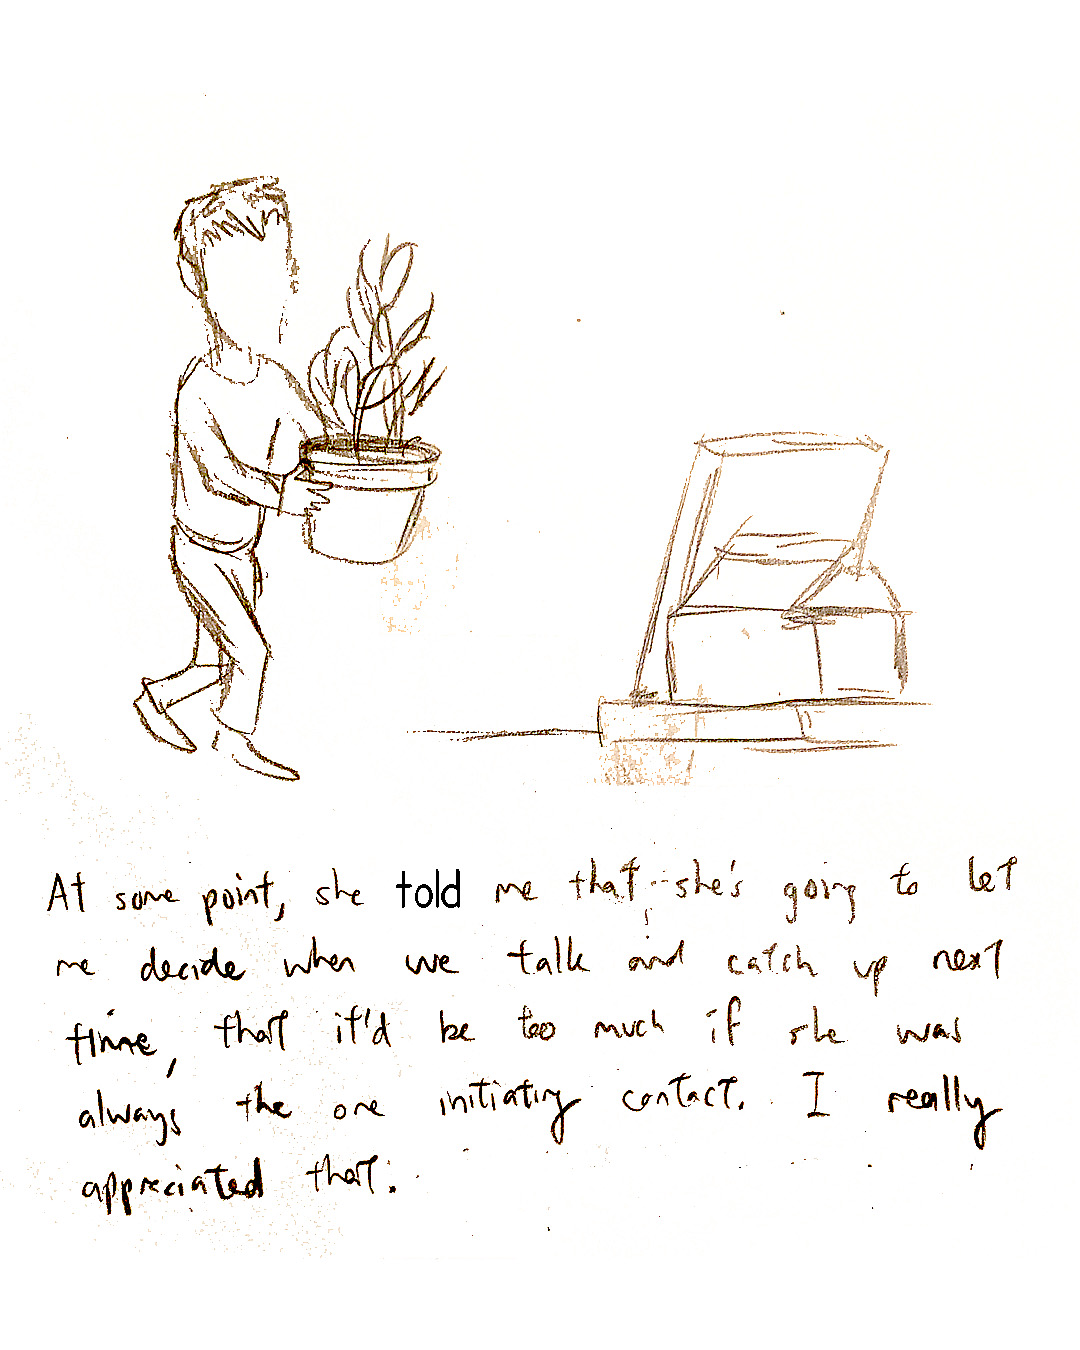 At some point, she told me that she's going to let
me decide when we talk and catch up next
time, that it'd be too much if she was
always the one initiating contact. I really
appreciated that.